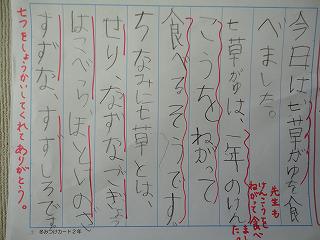 今日は七草がゆを食
べました。
七草がゆは、一年のけん
こうをねがって
食べるそうです。
ちなみに七草とは、
せり、なずな、ごぎょう
はこべら、ほとけのざ、
すずな、すずしろです
先生も
けんこうを
ねがって食べ
ました。
七つをしょうかいしてくれてありがとう。
きみつけカード2年